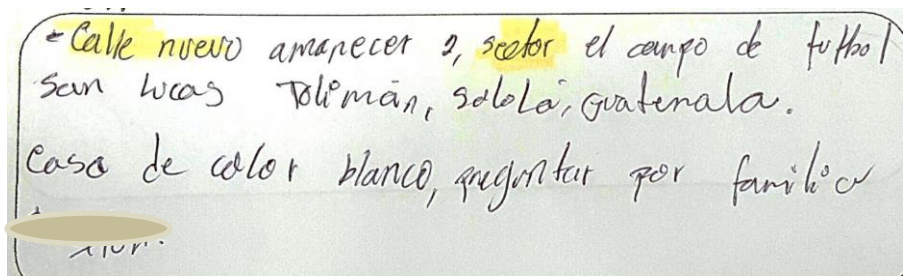 - Calle nuevo amanecer 2, sector el campo de futbol
San Lucas Tolimán, Sololá, Guatemala.
Casa de color blanco, preguntar por familia